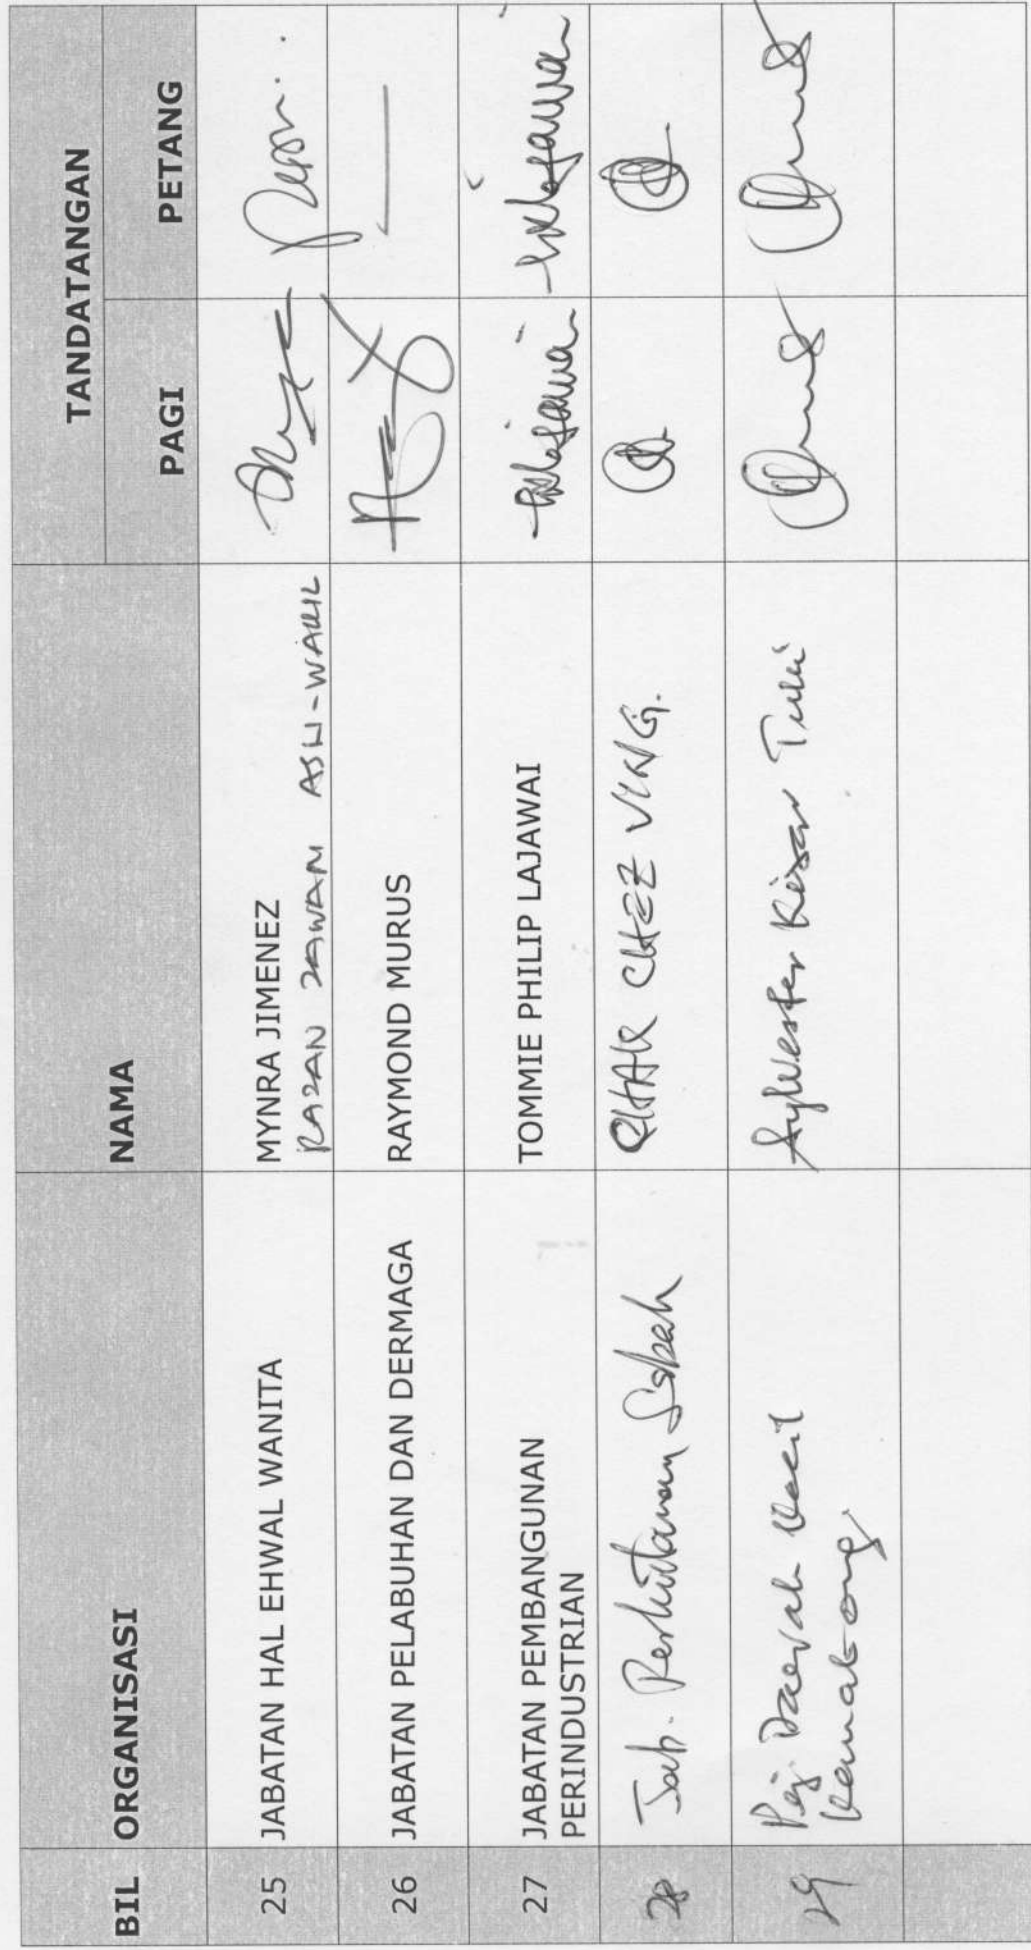 BIL ORGANISASI NAMA TANDATANGAN
PAGI PETANG
25 JABATAN HAL EHWAL WANITA MYNRA JIMENEZ
26 JABATAN PELABUHAN DAN DERMAGA RAYMOND MURUS
27 JABATAN PEMBANGUNAN
PERINDUSTRIAN TOMMIE PHILIP LAJAWAI
28 Jab. Perhutanan Sabah CHAK CHEE VING.
29 Pej. Daerah Kecil
Kemabong Sylvester